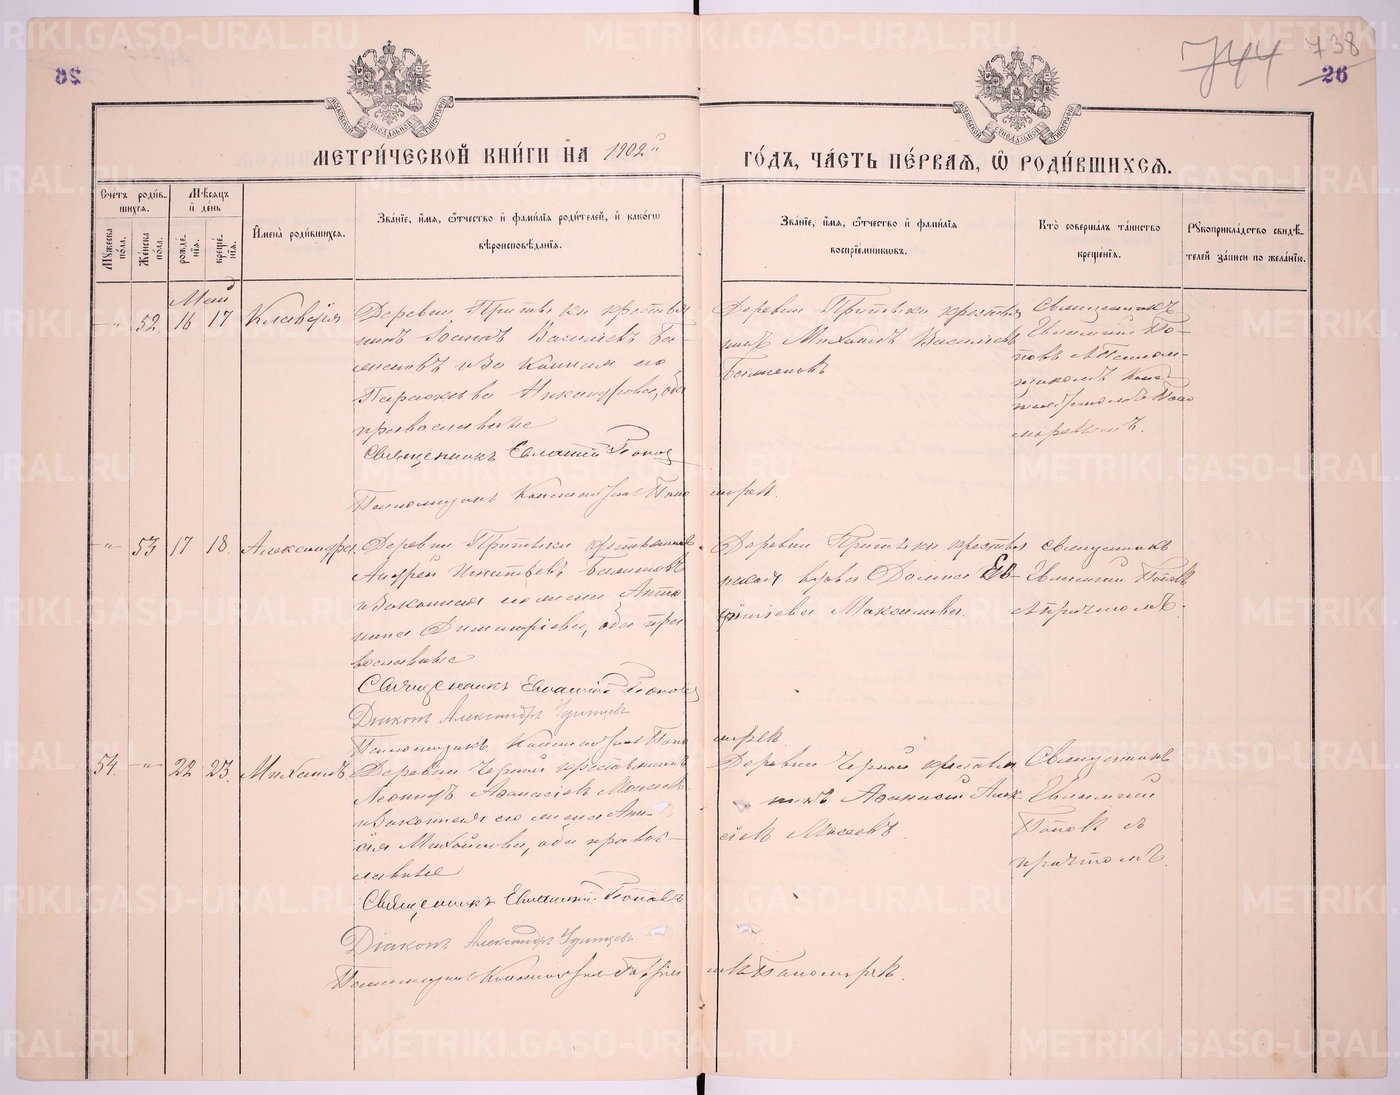 26
744
738
26
МЕТРИЧЕСКОЙ КНИГИ НА 1902й
ГОДЪ, ЧАСТЬ ПЕРВАЯ, Ѿ РОДИВШИХСЯ.
Счетъ родив-
шихся.
Мужеска
пола.
Женска
пола.
Мѣсяцъ
и день
рожде-
нія.
креще-
нія.
Имена родившихся.
Званіе, имя, отчество и фамилія родителей, и какогѡ
вѣроисповѣданія.
Званіе, имя, отчество и фамилія
воспріемниковъ.
Кто совершалъ таинство
крещенія.
Рукоприкладство свидѣ-
телей записи по желанію.
Май
52 16 17 Клавдія
Деревни Притыки крестья
нинъ Іоаннъ Васильевъ
и Законная его
Параскева Никандрова, оба
православные
Священникъ Евлампій Попов
Псаломщикъ Константинъ Поно марев.
Деревни Притыки крестья
нинъ Михаилъ Васильевъ
Священникъ
Евлампій По-
повъ с Псалом-
щикомъ Конс-
тантиномъ Поно
маревымъ.
53 17 18. Александра
Деревни Притыки крестьянинъ
Андрей Никитьевъ
и Законная его жена Анто
нина Димитріева, оба пра
вославные
Священникъ Евлампій Попов
Діаконъ Александръ
Псаломщикъ Константинъ Поно марев.
Деревни Притыки крестья
вдова Домна Ев-
фиміева Максимова.
Священникъ
Евлампій Попов
с причтомъ.
54. 22 23. Михаилъ
Деревни Черной крестьянинъ
Леонидъ Афанасіевъ Моисеевъ
и Законная его жена Ани-
сія Михайлова, оба правос-
лавные
Священникъ Евлампій Поповъ
Діаконъ Александръ
Псаломщикъ Константинъ Пономарев.
Деревни Черной крестья
нинъ Афанасій Алек
сіевъ Моисеевъ.
Священникъ
Евлампій
Попов с
причтомъ.
METRIKI.GASO-URAL.RU